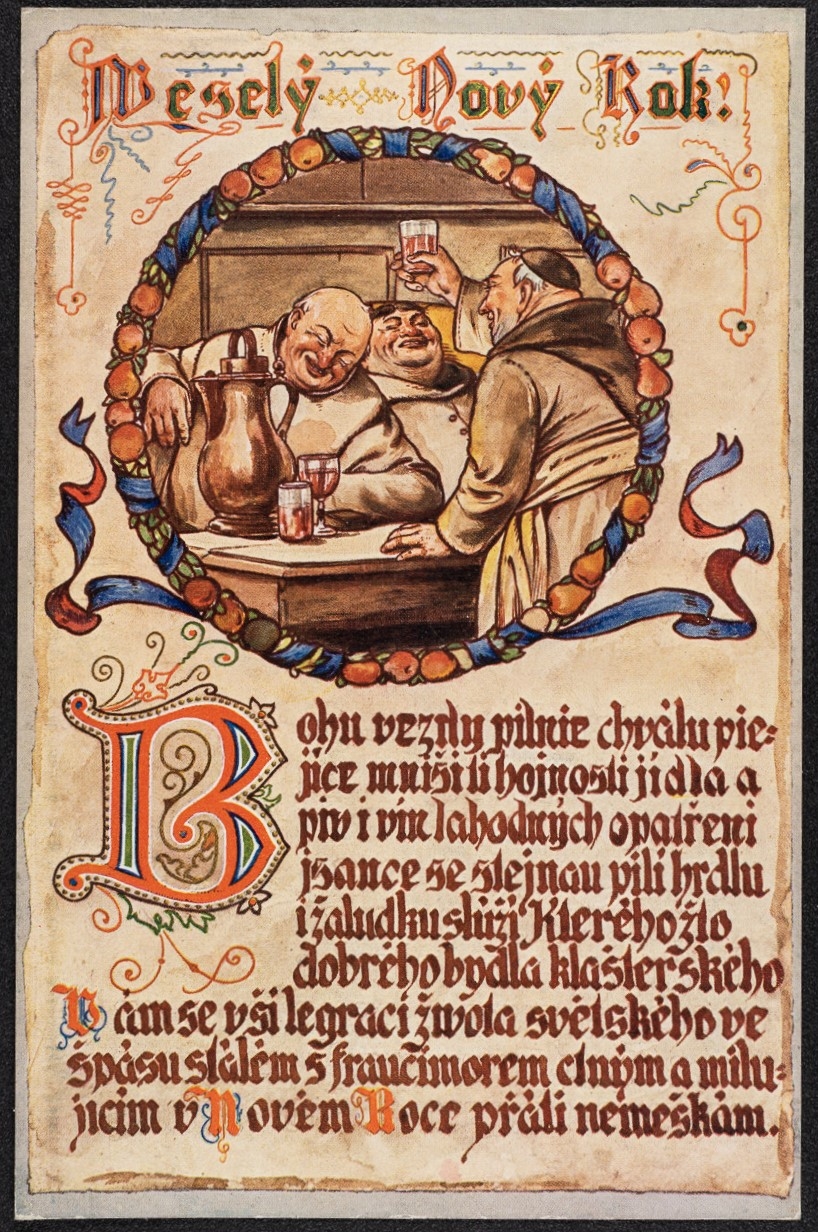 Veselý Nový Rok!
Bohu vezdy pilnie chválu pie-
jíce mniši ti hojnosti jídla a
piv i vín lahodných opatřeni
jsance se stejnau pílí hrdlu
i žaludku slúží Kteréhožto
dobrého bydla klášterského
Vám se vší legrací života světského ve
spásu stálém s fraucimorem ctným a milu-
jícím v Novém Roce přáti nemeškám.